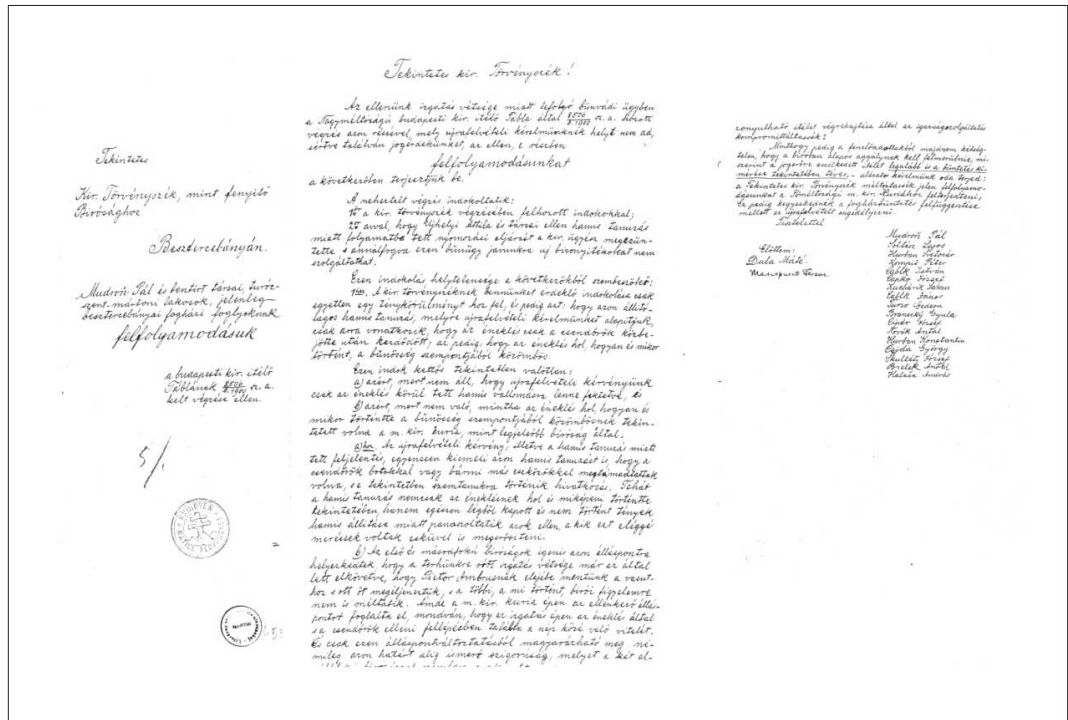 Tekintetes
Kir. Törvényszék, mint fenyítő
Bírósághoz
Besztercebányán.
Mudroň Pál és bentírt társai, turócz
szent-mártoni lakosok, jelenleg
besztercebányai fogházi foglyoknak
felfolyamodásuk
a budapesti kir. ítélő
Táblának 8506/B.1900 sz. a.
kelt végzése ellen.
5/1
Tekintetes kir. Törvényszék!
Az ellenünk izgatás vétsége miatt lefolyó bünvádi ügyben
a Nagyméltóságú budapesti kir. ítélő Tábla által 8506/B.1900 sz. a. hozott
végzés azon részével, mely ujrafelvételi kérelmünknek helyt nem ad,
sértve találván jogérzékünket, az ellen, e részben
felfolyamodásunkat
a következőben terjesztjük be.
A neheztelt végzés indokoltatik:
1ször a kir. törvényszék végzésében felhozott indokokkal;
2szor avval, hogy Ujhelyi Attila és társai ellen hamis tanuzás
miatt folyamatba tett nyomozási eljárást a kir. ügyész megszün-
tette s annálfogva ezen bünügy javunkra uj bizonyítékokat nem
szolgáltathat.
Ezen indokolás helytelensége a következőkből szembeszökő:
1ször, A kir. törvényszéknek bennünket érdeklő indokolása csak
egyetlen egy ténykörülményt hoz fel, és pedig azt: hogy azon állító-
lagos hamis tanuzás, melyre ujrafelvételi kérelmünket alapítjuk,
csak arra vonatkozik, hogy az éneklés csak a csendőrök közbe-
jötte után kezdődött; az pedig, hogy az éneklés hol, hogyan és mikor
történt, a bűnösség szempontjából közömbös.
Ezen indok kettős tekintetben valótlan:
a) azért, mert nem áll, hogy ujrafelvételi kérvényünk
csak az éneklés körül tett hamis vallomásra lenne fektetve, és
b) azért, mert nem való, mintha az éneklés hol, hogyan és
mikor történtte a bűnösség szempontjából közömbösnek tekin-
tetett volna a m. kir. kuria, mint legfelsőbb bíróság által.
a) hoz. Az ujrafelvételi kérvény, illetve a hamis tanuzás miatt
tett feljelentés, egyenesen kiemeli azon hamis tanuzást is, hogy a
csendőrök botokkal vagy bármi más eszközökkel megtámadtattak
volna, s e tekintetben szemtanukra történik hivatkozás. Tehát
a hamis tanuzás nemcsak az éneklésnek hol és miképeni történtte
tekintetében, hanem egészen légből kapott és nem történt tények
hamis állítása miatt panaszoltatik azok ellen, a kik ezt eléggé
merészek voltak esküvel is megerősíteni.
b) Az első és másodfokú bíróságok igenis azon álláspontra
helyezkedtek, hogy a terhünkre rótt izgatás vétsége már az által
lett elkövetve, hogy Pietor Ambrusnak elejébe mentünk a vasut-
hoz s ott őt megéljeneztük, s a többi, a mi történt, bírói figyelemre
nem is méltatik. Amde a m. kir. kuria épen az ellenkező állás-
pontot foglalta el, mondván, hogy az izgatás épen az éneklés által
s a csendőrök elleni fellépésben találta a nép közé való vitelét.
És csak ezen álláspontváltoztatásból magyarázható meg né-
mileg azon határt alig ismerő szigoruság, melyet a két al-
zonyulható itélet végrehajtása által az igazságszolgáltatás
kompromittáltassék!
Minthogy pedig a fenelőadottakból majdnem kétség-
telen, hogy a bíróban alapos aggálynak kell felmerülnie, mi-
szerint a jogerőre emelkedett itélet legalább is a büntetés ki-
mérése tekintetében téves, – alázatos kérelmünk oda terjed:
a Tekintetes kir. Törvényszék méltóztassék jelen felfolyamo-
dásunkat a Nméltóságú m. kir. Kuriához felterjeszteni,
Ez pedig kegyeskedjék a fogházbüntetés felfüggesztése
mellett az ujrafelvételt engedélyezni.
Tisztelettel
Előttem:
Dula Máté.
Mudroň Pál
Soltész Lajos
Hurban Svetozár
Kompis Péter
Cablk István
Capko József
Kuchárik János
Cablk János
Turzo Gedeon
Branecky Gyula
Cipár József
Novák Antal
Hurban Konstantin
Cajda György
Skultéty József
Bielek Antal
Halasa András